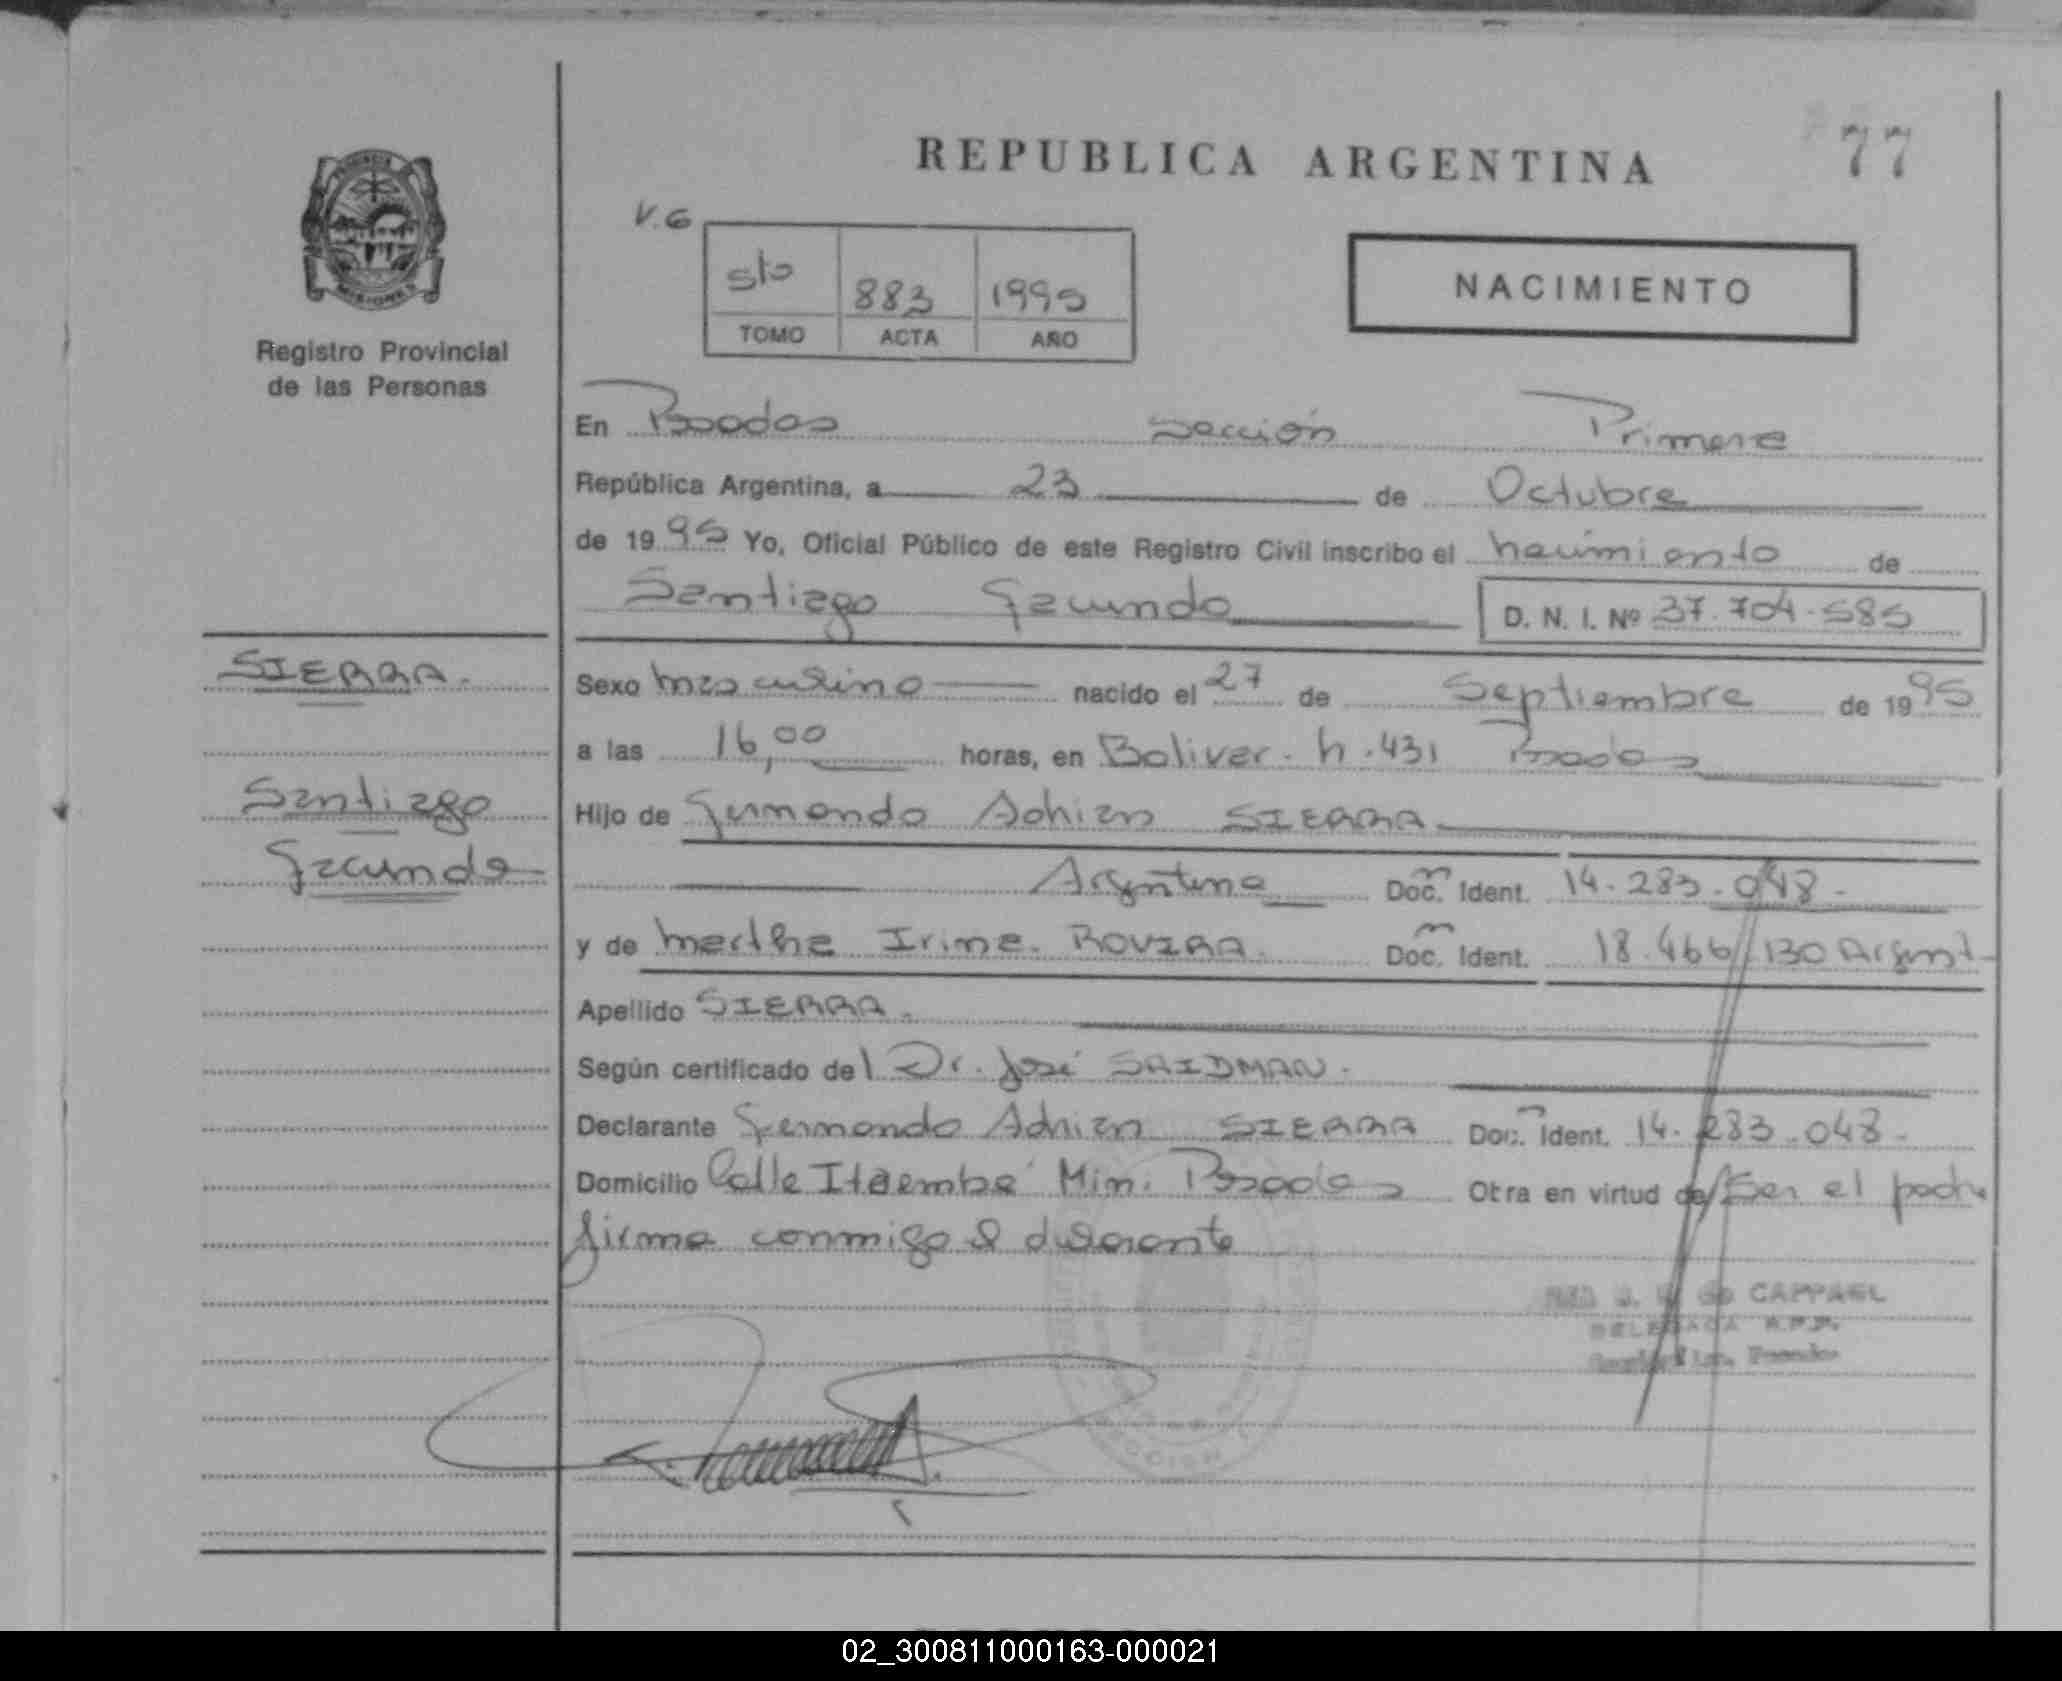 REPUBLICA ARGENTINA
77
PROVINCIA
MISIONES
Registro Provincial
de las Personas
V.G
sto 883 1995
TOMO ACTA AÑO
NACIMIENTO
En Posadas sección Primera
República Argentina, a 23 de Octubre
de 1995 Yo, Oficial Público de este Registro Civil inscribo el nacimiento de
Santiago Facundo D. N. I. Nº 37.704.585
SIERRA.
Santiago
Facundo
Sexo masculino nacido el 27 de Septiembre de 1995
a las 16,00 horas, en Bolivar. n.431 Posadas
Hijo de Fernando Adrian SIERRA
Argentino Doc. Ident. 14.283.048.
y de Martha Irine. ROVIRA. Doc. Ident. 18.466.130 Argent
Apellido SIERRA.
Según certificado del Dr. José SAIDMAN.
Declarante Fernando Adrian SIERRA Doc. Ident. 14.283.048.
Domicilio Calle Itaembé Mini Posadas Otra en virtud de Ser el padre
firma conmigo el declarante
CAPPAEL
DELEGADA R.P.P.
Posadas
02_300811000163-000021